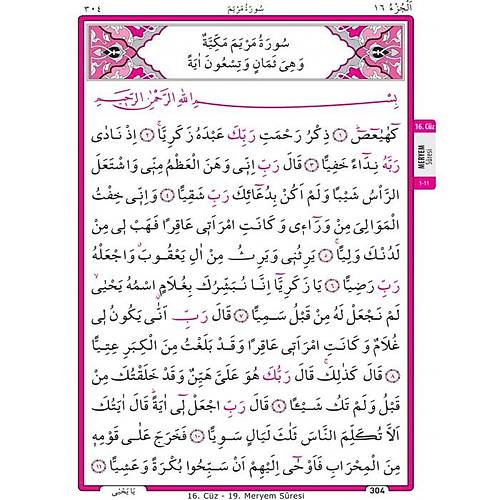 اَلْجُزْءُ ١٦
سُورَةُ مَرْيَمَ
٣٠٤
سُورَةُ مَرْيَمَ مَكِّيَّةٌ
وَهِيَ ثَمَانٍ وَتِسْعُونَ اٰيَةً
بِسْمِ اللّٰهِ الرَّحْمٰنِ الرَّح۪يمِ
كٓهٰيٰعٓصٓ ﴿١﴾ ذِكْرُ رَحْمَتِ رَبِّكَ عَبْدَهُ زَكَرِيَّا ﴿٢﴾ اِذْ نَادٰى
رَبَّهُ نِدَٓاءً خَفِيًّا ﴿٣﴾ قَالَ رَبِّ اِنّ۪ي وَهَنَ الْعَظْمُ مِنّ۪ي وَاشْتَعَلَ
الرَّأْسُ شَيْبًا وَلَمْ اَكُنْ بِدُعَٓائِكَ رَبِّ شَقِيًّا ﴿٤﴾ وَاِنّ۪ي خِفْتُ
الْمَوَالِيَ مِنْ وَرَٓاء۪ي وَكَانَتِ امْرَاَت۪ي عَاقِرًا فَهَبْ ل۪ي مِنْ
لَدُنْكَ وَلِيًّا ﴿٥﴾ يَرِثُن۪ي وَيَرِثُ مِنْ اٰلِ يَعْقُوبَ وَاجْعَلْهُ
رَبِّ رَضِيًّا ﴿٦﴾ يَا زَكَرِيَّٓا اِنَّا نُبَشِّرُكَ بِغُلَامٍ اسْمُهُ يَحْيٰى
لَمْ نَجْعَلْ لَهُ مِنْ قَبْلُ سَمِيًّا ﴿٧﴾ قَالَ رَبِّ اَنّٰى يَكُونُ ل۪ي
غُلَامٌ وَكَانَتِ امْرَاَت۪ي عَاقِرًا وَقَدْ بَلَغْتُ مِنَ الْكِبَرِ عِتِيًّا
﴿٨﴾ قَالَ كَذٰلِكَ قَالَ رَبُّكَ هُوَ عَلَيَّ هَيِّنٌ وَقَدْ خَلَقْتُكَ مِنْ
قَبْلُ وَلَمْ تَكُ شَيْـًٔا ﴿٩﴾ قَالَ رَبِّ اجْعَلْ ل۪ٓي اٰيَةً قَالَ اٰيَتُكَ
اَلَّا تُكَلِّمَ النَّاسَ ثَلٰثَ لَيَالٍ سَوِيًّا ﴿١٠﴾ فَخَرَجَ عَلٰى قَوْمِه۪
مِنَ الْمِحْرَابِ فَاَوْحٰٓى اِلَيْهِمْ اَنْ سَبِّحُوا بُكْرَةً وَعَشِيًّا ﴿١١﴾
16. Cüz
MERYEM
Sûresi
1-11
يَا يَحْيٰى
16. Cüz - 19. Meryem Sûresi
304